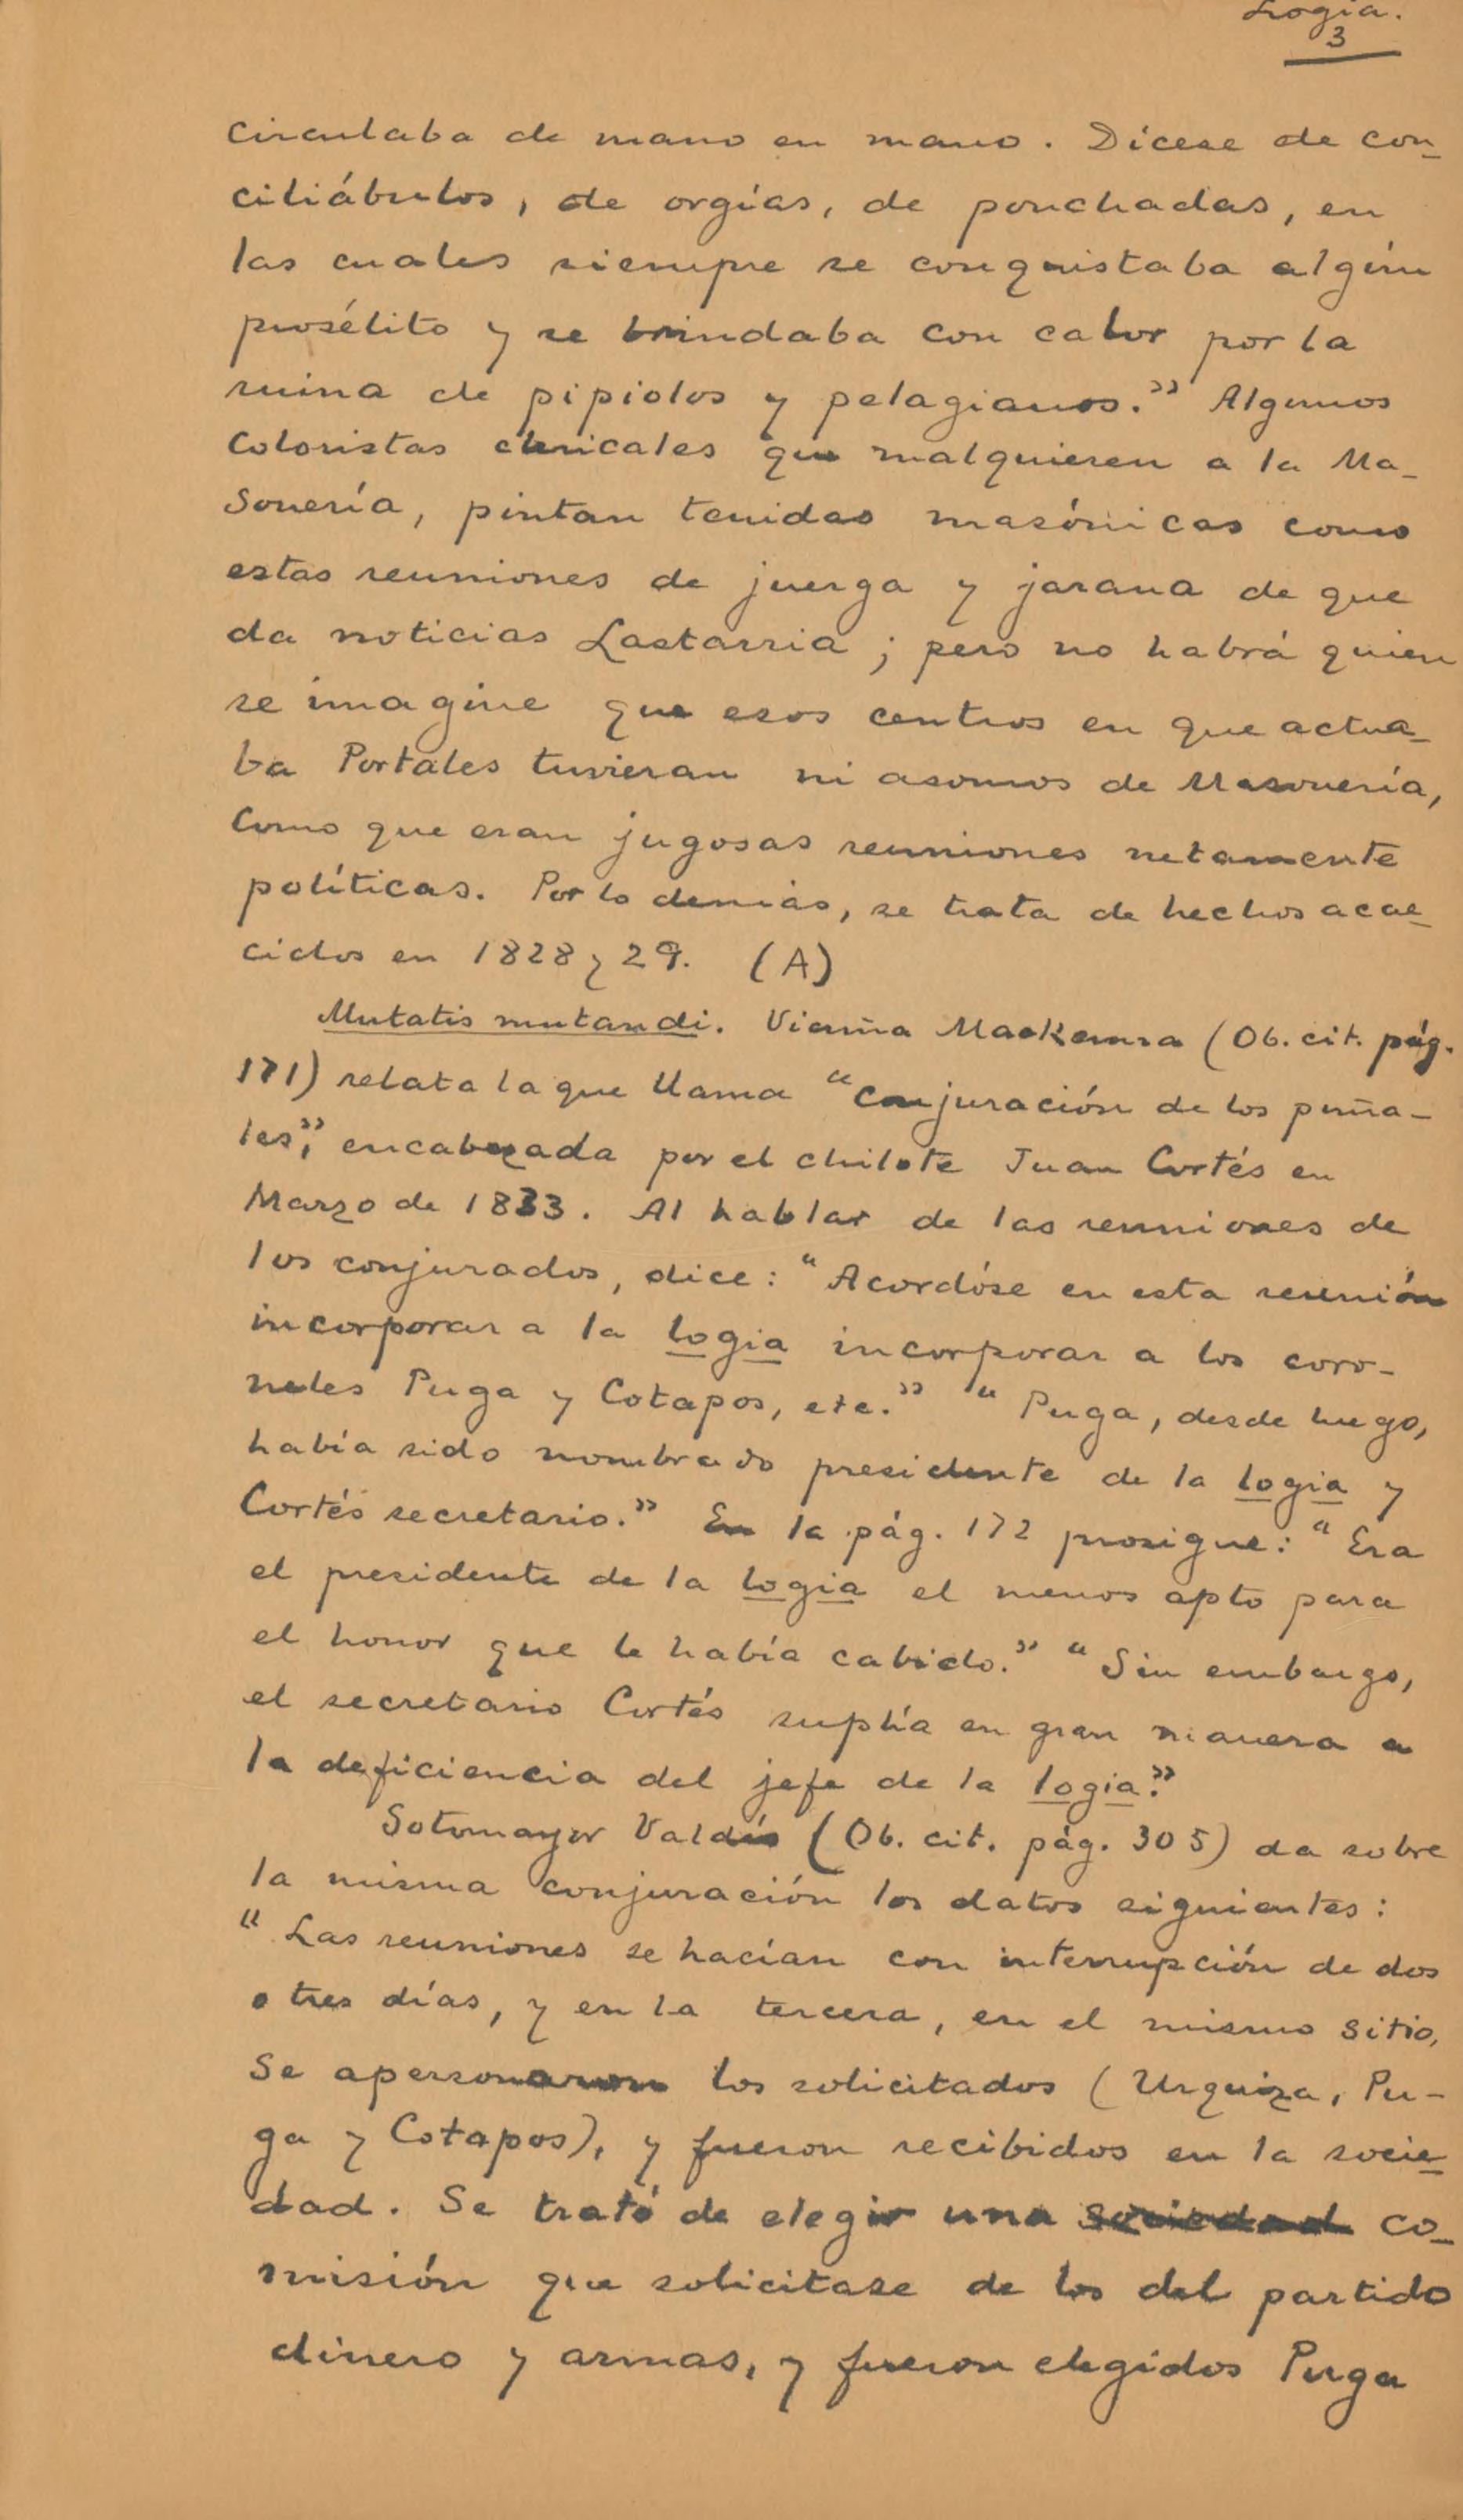 Logia.
3
circulaba de mano en mano. Dícese de con-
ciliábulos, de orgías, de ponchadas, en
las cuales siempre se conquistaba algún
prosélito y se brindaba con calor por la
ruina de pipiolos y pelagianos." Algunos
coloristas clericales que malquieren a la Ma-
sonería, pintan tenidas masónicas como
estas reuniones de juerga y jarana de que
da noticias Lastarria; pero no habrá quien
se imagine que esos centros en que actua-
ba Portales tuvieran ni asomos de Masonería,
como que eran jugosas reuniones netamente
políticas. Por lo demás, se trata de hechos acae-
cidos en 1828 y 29. (A)
Mutatis mutandi. Vicuña Mackenna (Ob. cit. pág.
171) relata la que llama "Conjuración de los puña-
les", encabezada por el chilote Juan Cortés en
Marzo de 1833. Al hablar de las reuniones de
los conjurados, dice: "Acordóse en esta reunión
incorporar a la logia incorporar a los coro-
neles Puga y Cotapos, etc." "Puga, desde luego,
había sido nombrado presidente de la logia y
Cortés secretario." En la pág. 172 prosigue: "Era
el presidente de la logia el menos apto para
el honor que le había cabido." "Sin embargo,
el secretario Cortés suplía en gran manera a
la deficiencia del jefe de la logia."
Sotomayor Valdés (Ob. cit. pág. 305) da sobre
la misma conjuración los datos siguientes:
"Las reuniones se hacían con interrupción de dos
o tres días, y en la tercera, en el mismo sitio,
se apersonaron los solicitados (Urquiza, Pu-
ga y Cotapos), y fueron recibidos en la socie-
dad. Se trató de elegir una sociedad co-
misión que solicitase de los del partido
dinero y armas, y fueron elegidos Puga